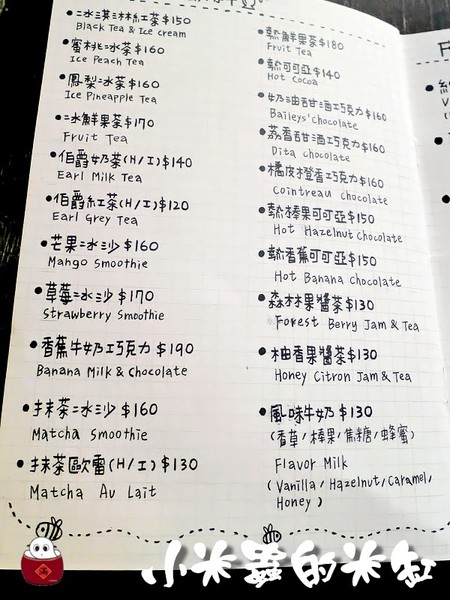 冰淇淋紅茶 $150
Black Tea & Ice cream
蜜桃冰茶 $160
Ice Peach Tea
鳳梨冰茶 $160
Ice Pineapple Tea
冰鮮果茶 $170
Fruit Tea
伯爵奶茶(H/I) $140
Earl Milk Tea
伯爵紅茶(H/I) $120
Earl Grey Tea
芒果冰沙 $160
Mango Smoothie
草莓冰沙 $170
Strawberry Smoothie
香蕉牛奶巧克力 $190
Banana Milk & Chocolate
抹茶冰沙 $160
Matcha Smoothie
抹茶歐雷(H/I) $130
Matcha Au Lait
熱鮮果茶 $180
Fruit Tea
熱可可亞 $140
Hot Cocoa
奶油甜酒巧克力 $160
Baileys' chocolate
荔香甜酒巧克力 $160
Dita chocolate
橘皮橙香巧克力 $160
Cointreau chocolate
熱榛果可可亞 $150
Hot Hazelnut Chocolate
熱香蕉可可亞 $150
Hot Banana Chocolate
森林果醬茶 $130
Forest Berry Jam & Tea
柚香果醬茶 $130
Honey Citron Jam & Tea
風味牛奶 $130
(香草/榛果/焦糖/蜂蜜)
Flavor Milk
(Vanilla/Hazelnut/Caramel/
Honey)
小米蟲的米缸